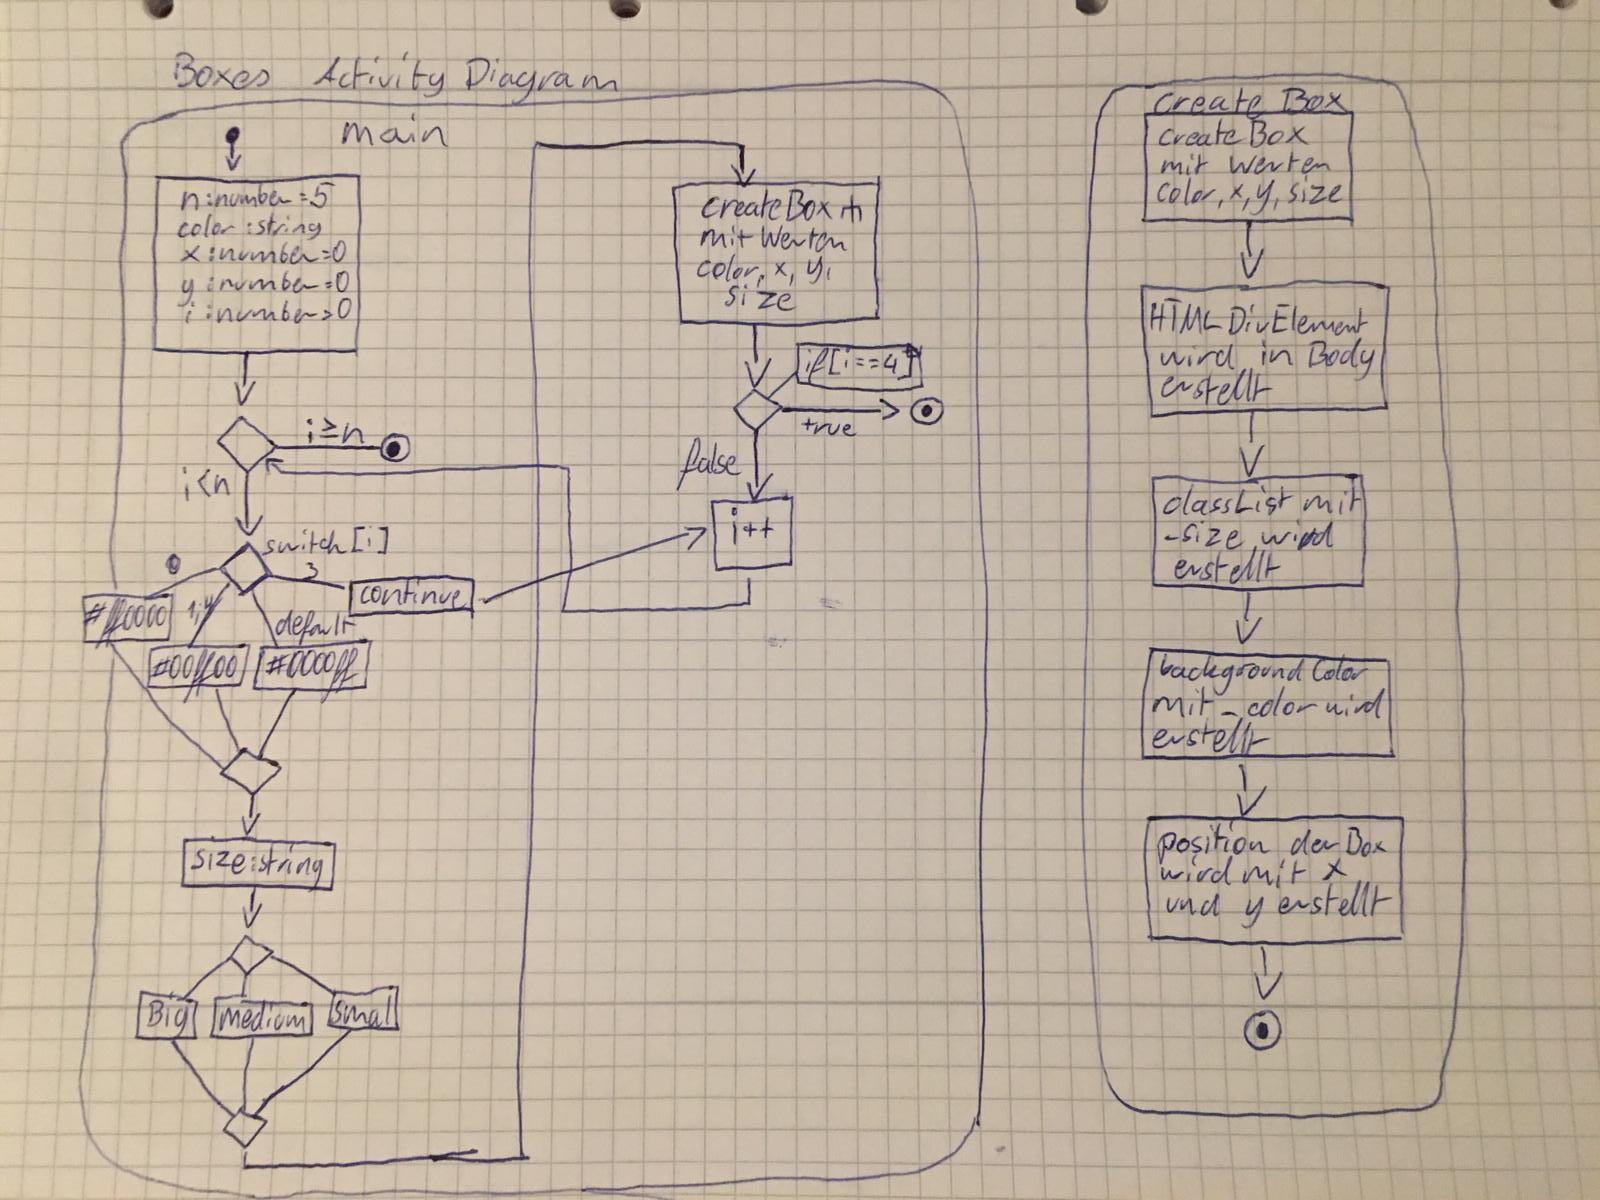 Boxes Activity Diagram
main
n:number=5
color:string
x:number=0
y:number=0
i:number=0
i≥n
i<n
switch[i]
0
3
continue
#ff0000
1,4
default
#00ff00
#0000ff
size:string
Big
medium
smal
createBox
mit Werten
color, x, y,
size
if[i==4]
true
false
i++
create Box
createBox
mit Werten
color, x, y, size
HTMLDivElement
wird in Body
erstellt
classList mit
_size wird
erstellt
backgroundColor
mit _color wird
erstellt
position der Box
wird mit x
und y erstellt